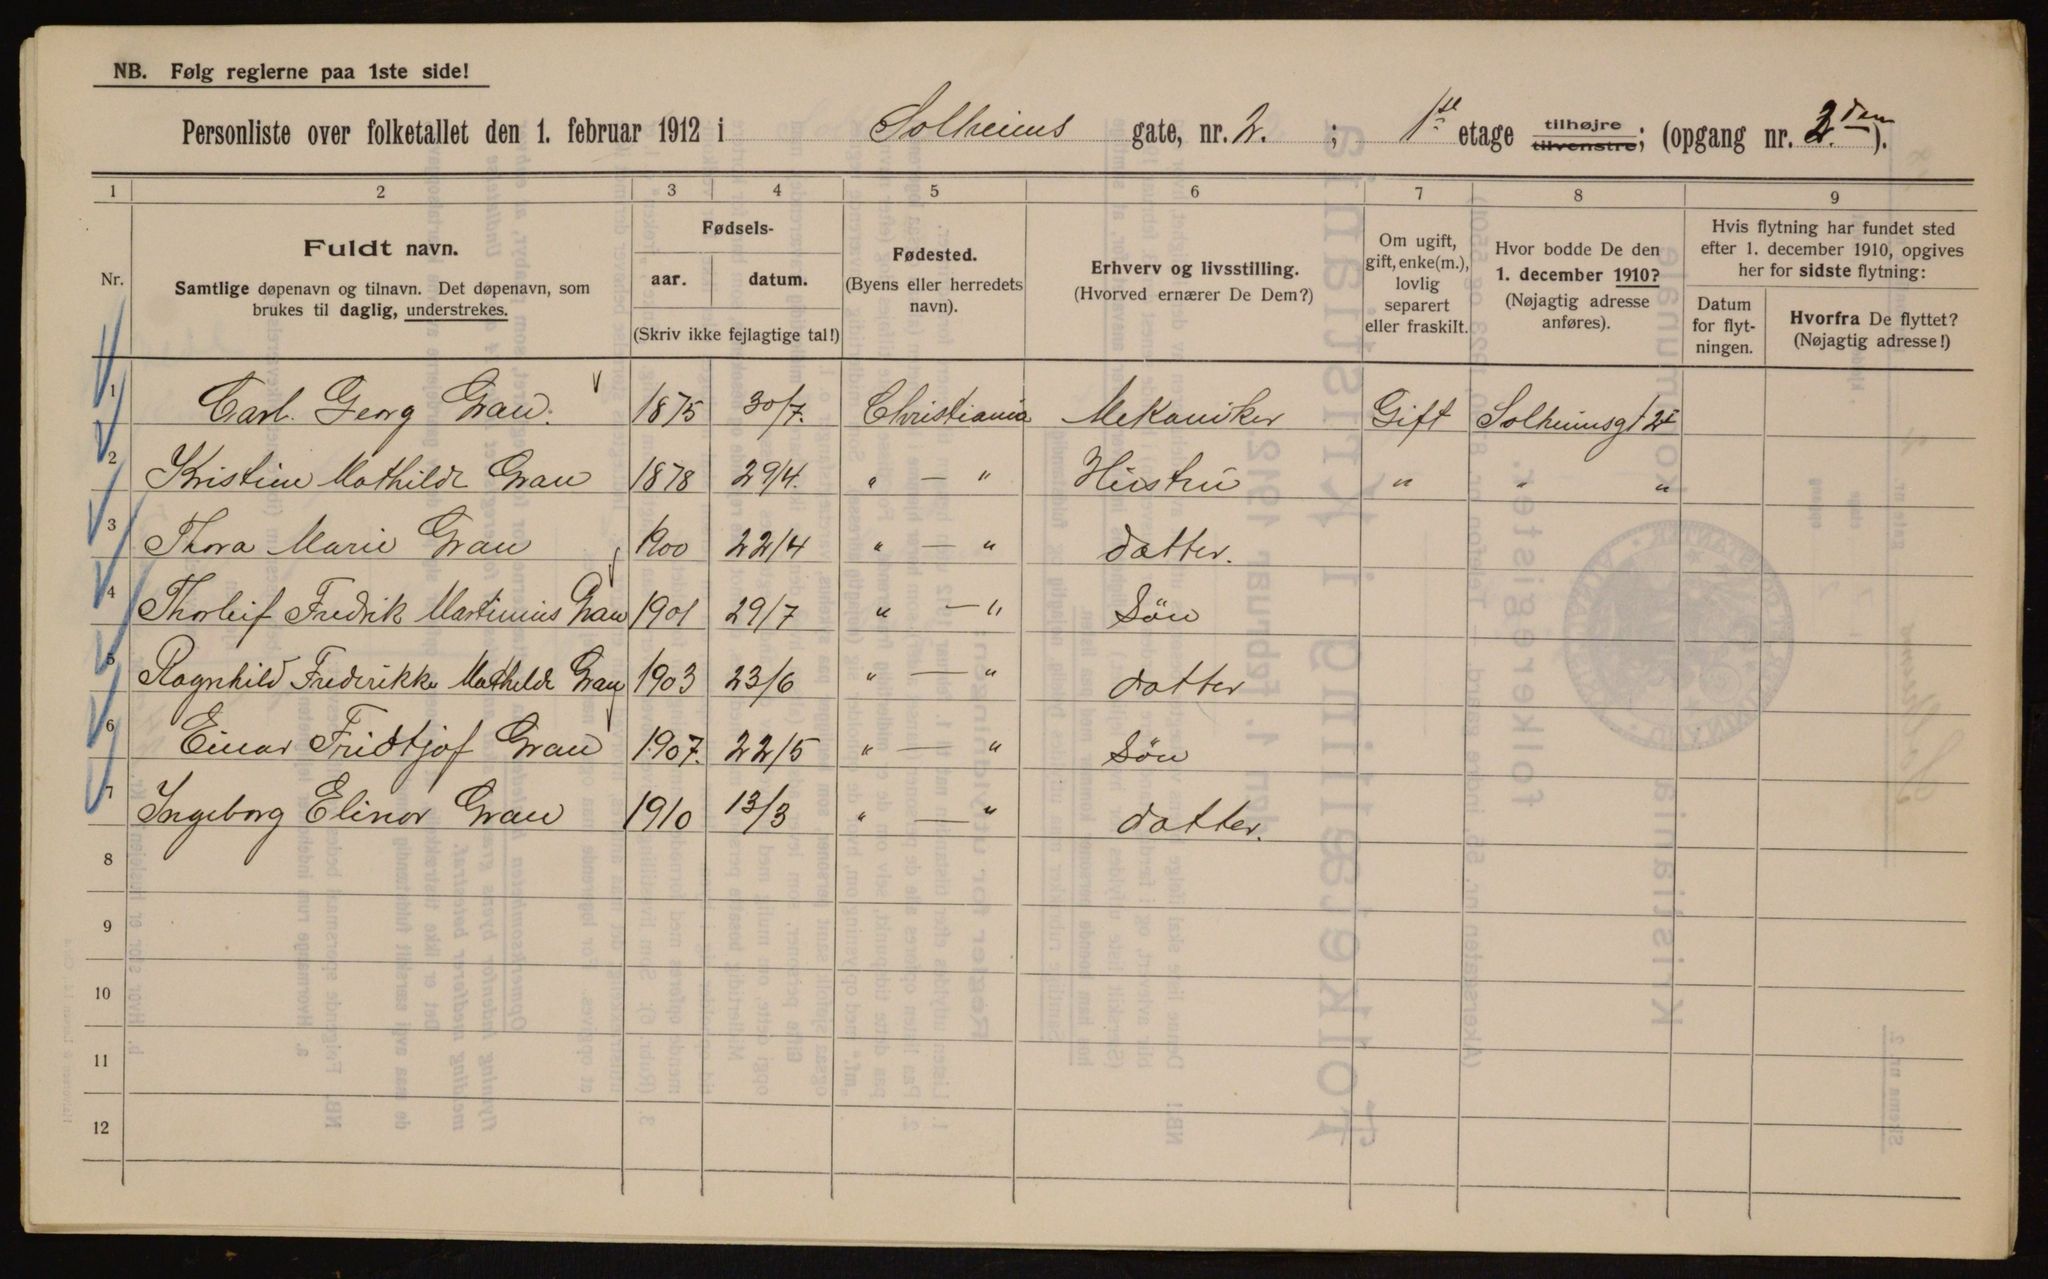 NB. Følg reglerne paa 1ste side!
Personliste over folketallet den 1. februar 1912 i Solheims gate, nr. 2. ; 1ste etage tilhøjre tilvenstre; (opgang nr. 2.den).
1 2 3 4 5 6 7 8 9
Nr.
Fuldt navn.
Samtlige døpenavn og tilnavn. Det døpenavn, som
brukes til daglig, understrekes.
Fødsels-
aar. datum.
(Skriv ikke fejlagtige tal!)
Fødested.
(Byens eller herredets
navn).
Erhverv og livsstilling.
(Hvorved ernærer De Dem?)
Om ugift,
gift, enke(m.),
lovlig
separert
eller fraskilt.
Hvor bodde De den
1. december 1910?
(Nøjagtig adresse
anføres).
Hvis flytning har fundet sted
efter 1. december 1910, opgives
her for sidste flytning:
Datum
for flyt-
ningen.
Hvorfra De flyttet?
(Nøjagtig adresse!)
1 Carl. Georg Grau. 1875 30/7. Christiania Mekaniker Gift Solheimsgt 2I
2 Kristine Mathilde Grau 1878 29/4. " — " Hustru " " "
3 Thora Marie Grau 1900 22/4 " — " datter.
4 Thorleif Fredrik Martinius Grau 1901 29/7 " — " Søn
5 Ragnhild Frederikke Mathilde Grau 1903 23/6 " — " datter
6 Einar Fridtjof Grau 1907. 22/5 " — " Søn
7 Ingeborg Elinor Grau 1910 13/3 " — " datter.
8
9
10
11
12